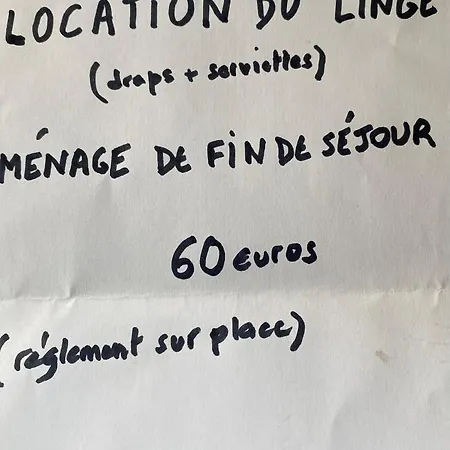 LOCATION DU LINGE
(draps + serviettes)
MÉNAGE DE FIN DE SÉJOUR
60 euros
(réglement sur place)